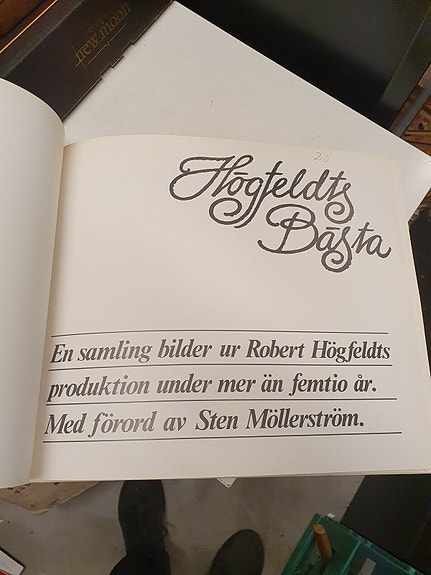 new moon
20
Högfeldts
Bästa
En samling bilder ur Robert Högfeldts
produktion under mer än femtio år.
Med förord av Sten Möllerström.